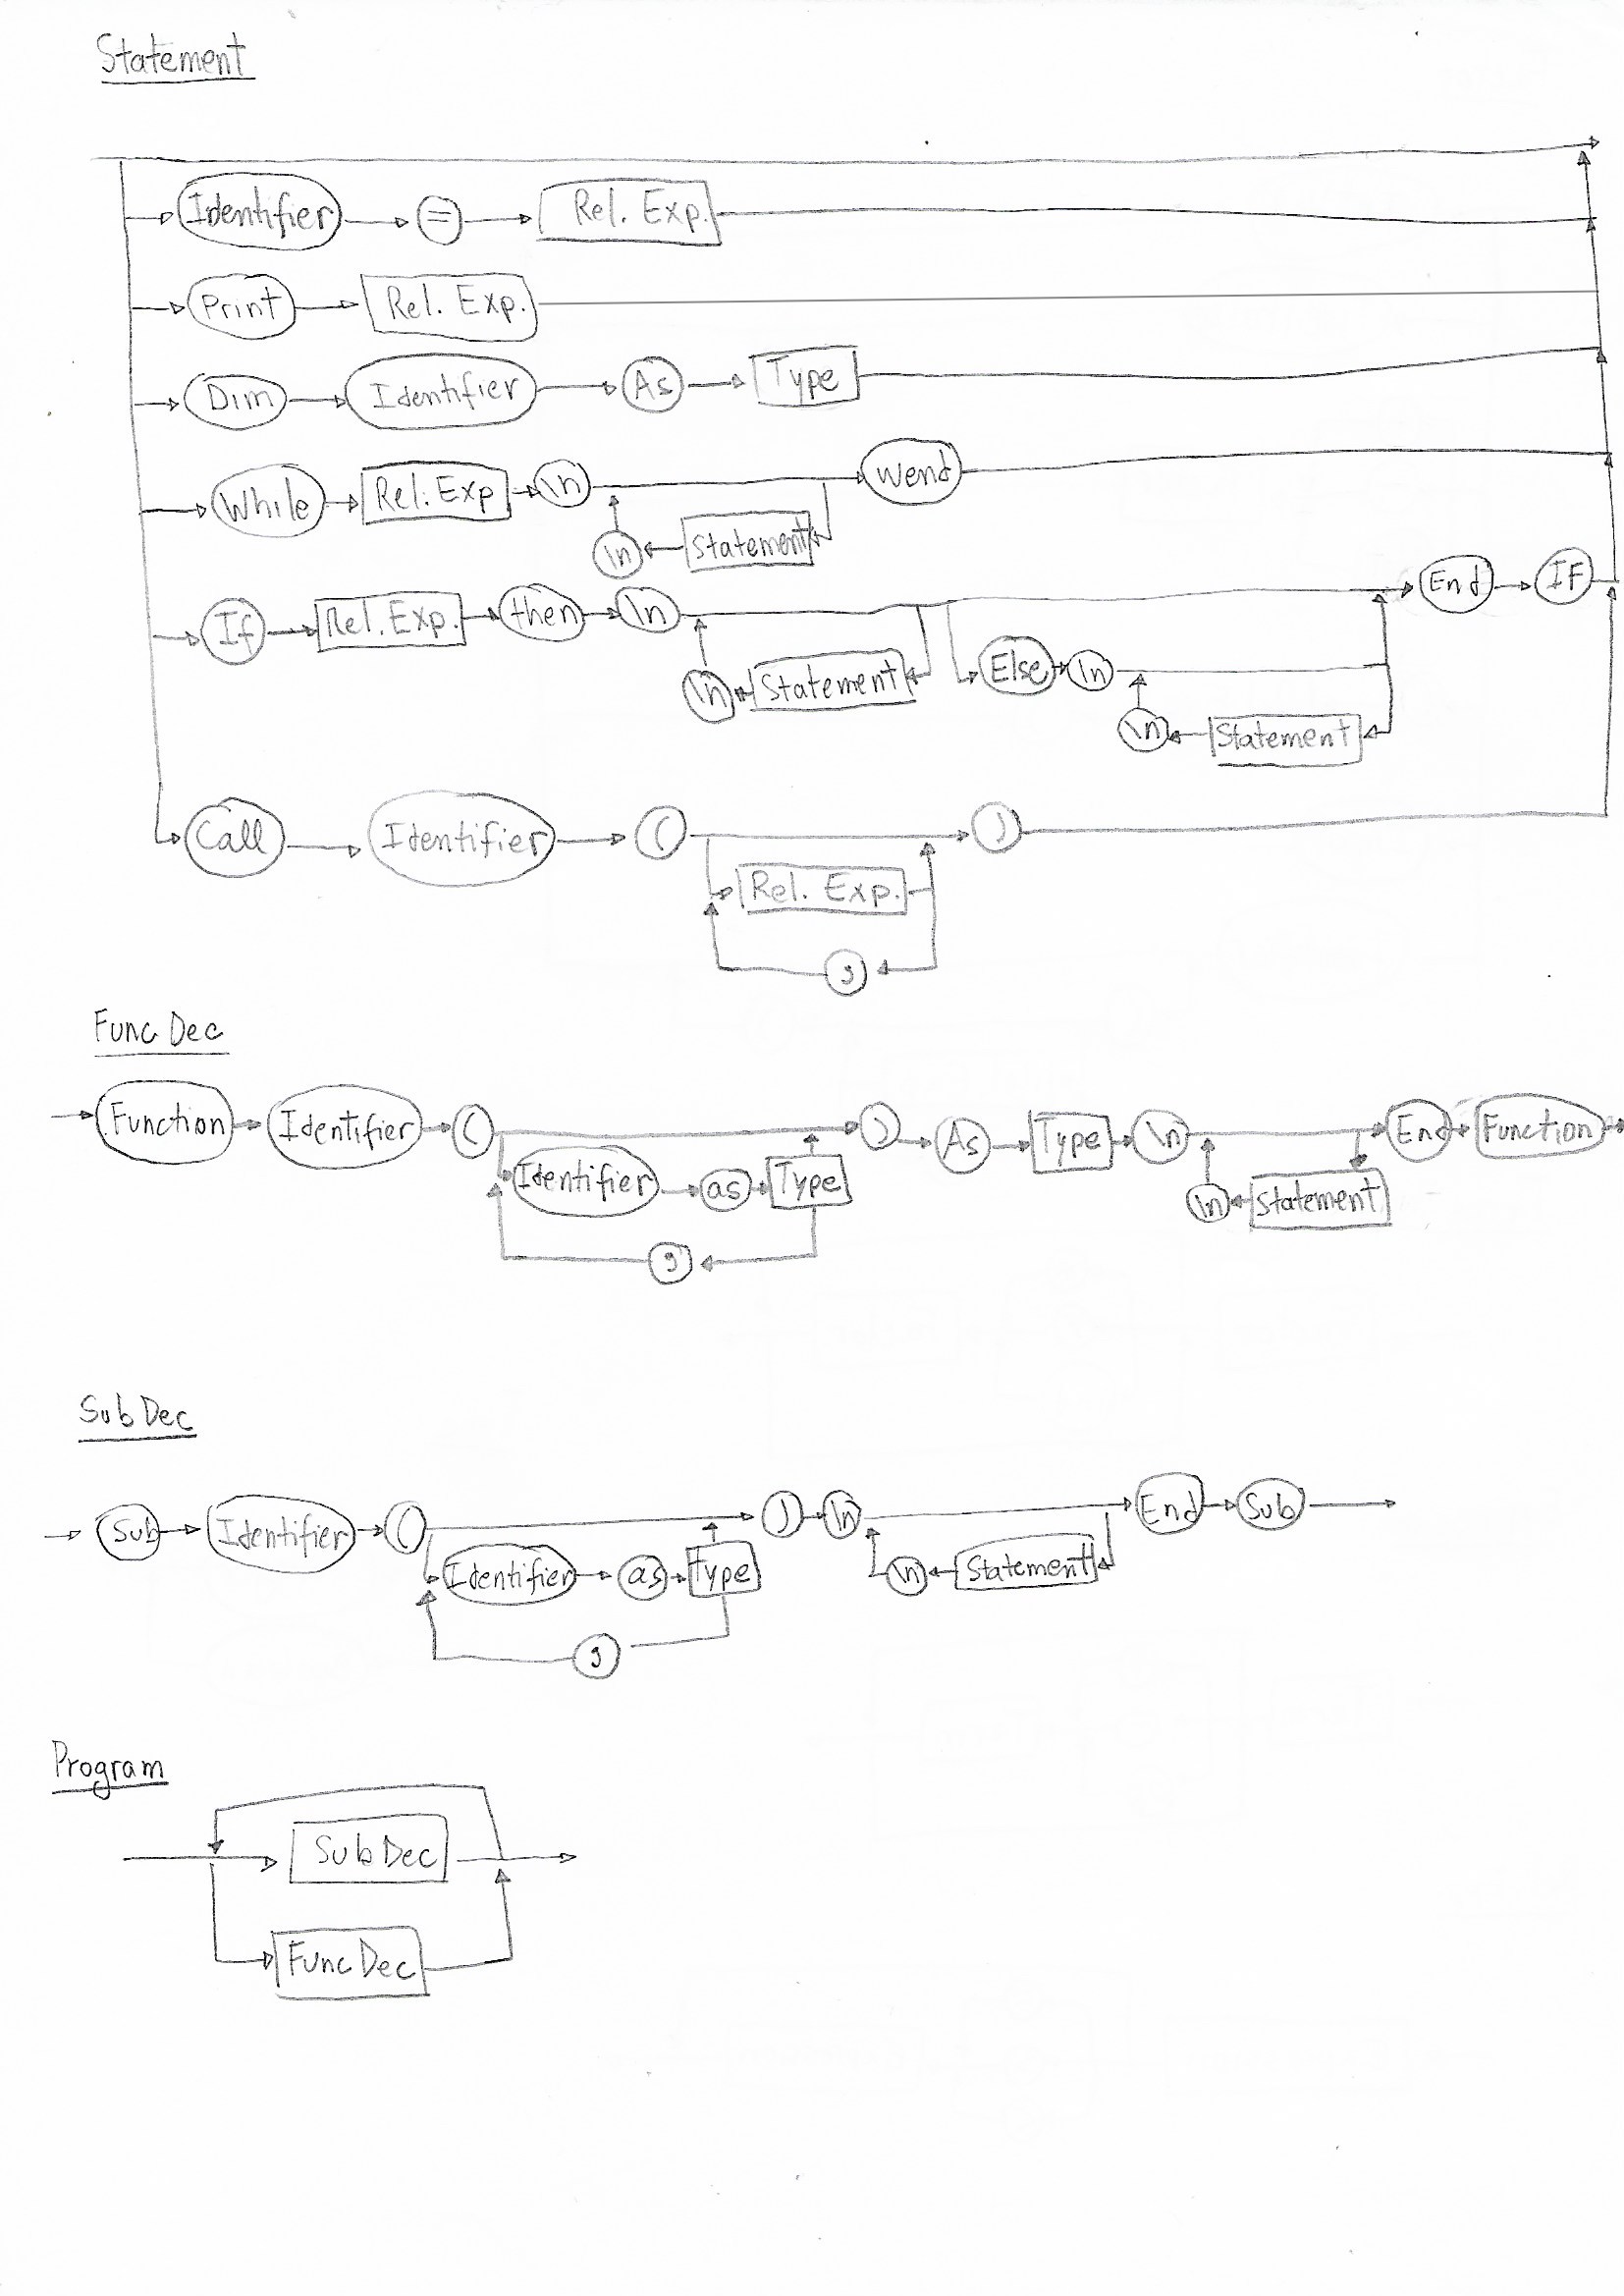 Statement
Identifier = Rel. Exp.
Print Rel. Exp.
Dim Identifier As Type
While Rel. Exp \n Wend
\n Statement
If Rel. Exp. then \n End IF
\n Statement Else \n
\n Statement
Call Identifier ( )
Rel. Exp.
,
Func Dec
Function Identifier ( ) As Type \n End Function
Identifier as Type \n Statement
,
Sub Dec
Sub Identifier ( ) \n End Sub
Identifier as Type \n Statement
,
Program
Sub Dec
Func Dec